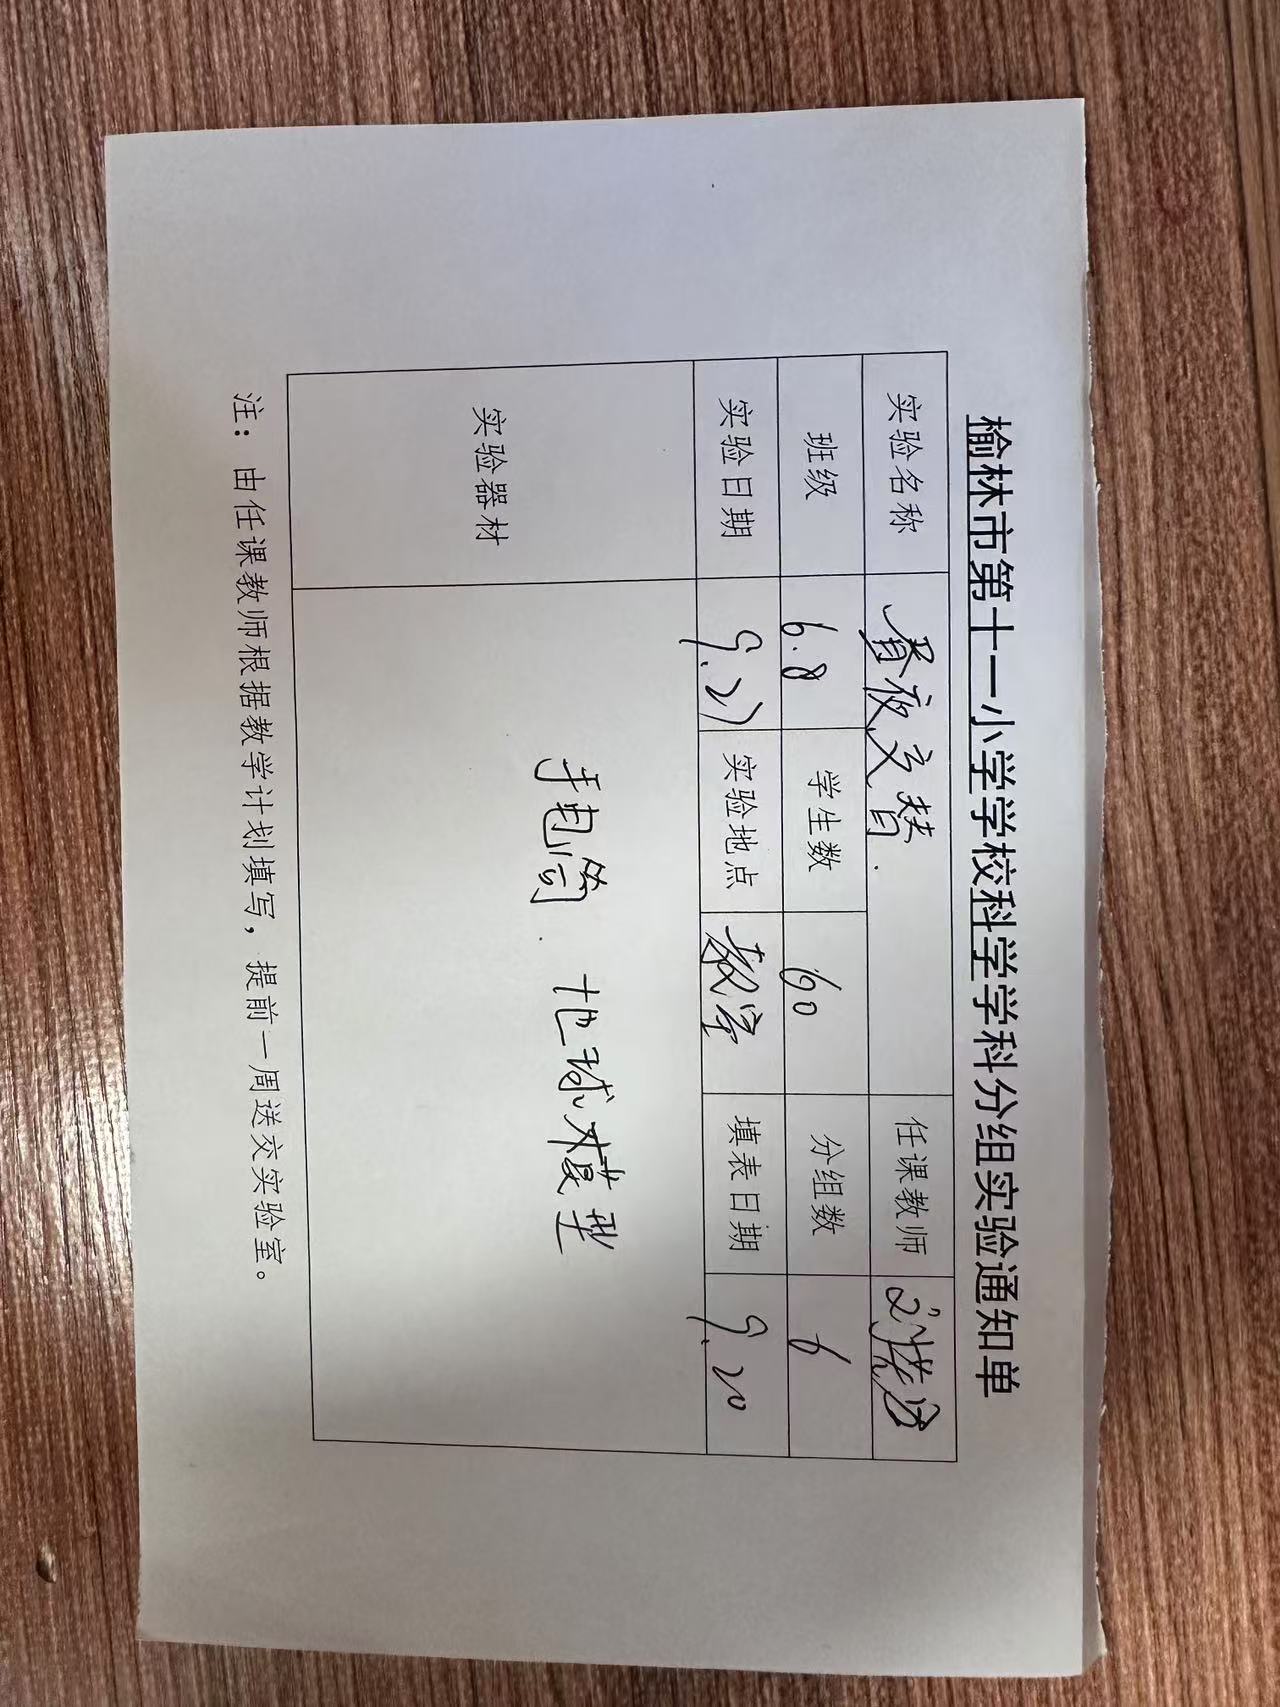 榆林市第十一小学学校科学学科分组实验通知单
实验名称 昼夜交替. 任课教师
班级 6.8 学生数 60 分组数 6
实验日期 9.21 实验地点 教室 填表日期 9.20
实验器材 手电筒. 地球模型
注：由任课教师根据教学计划填写，提前一周送交实验室。